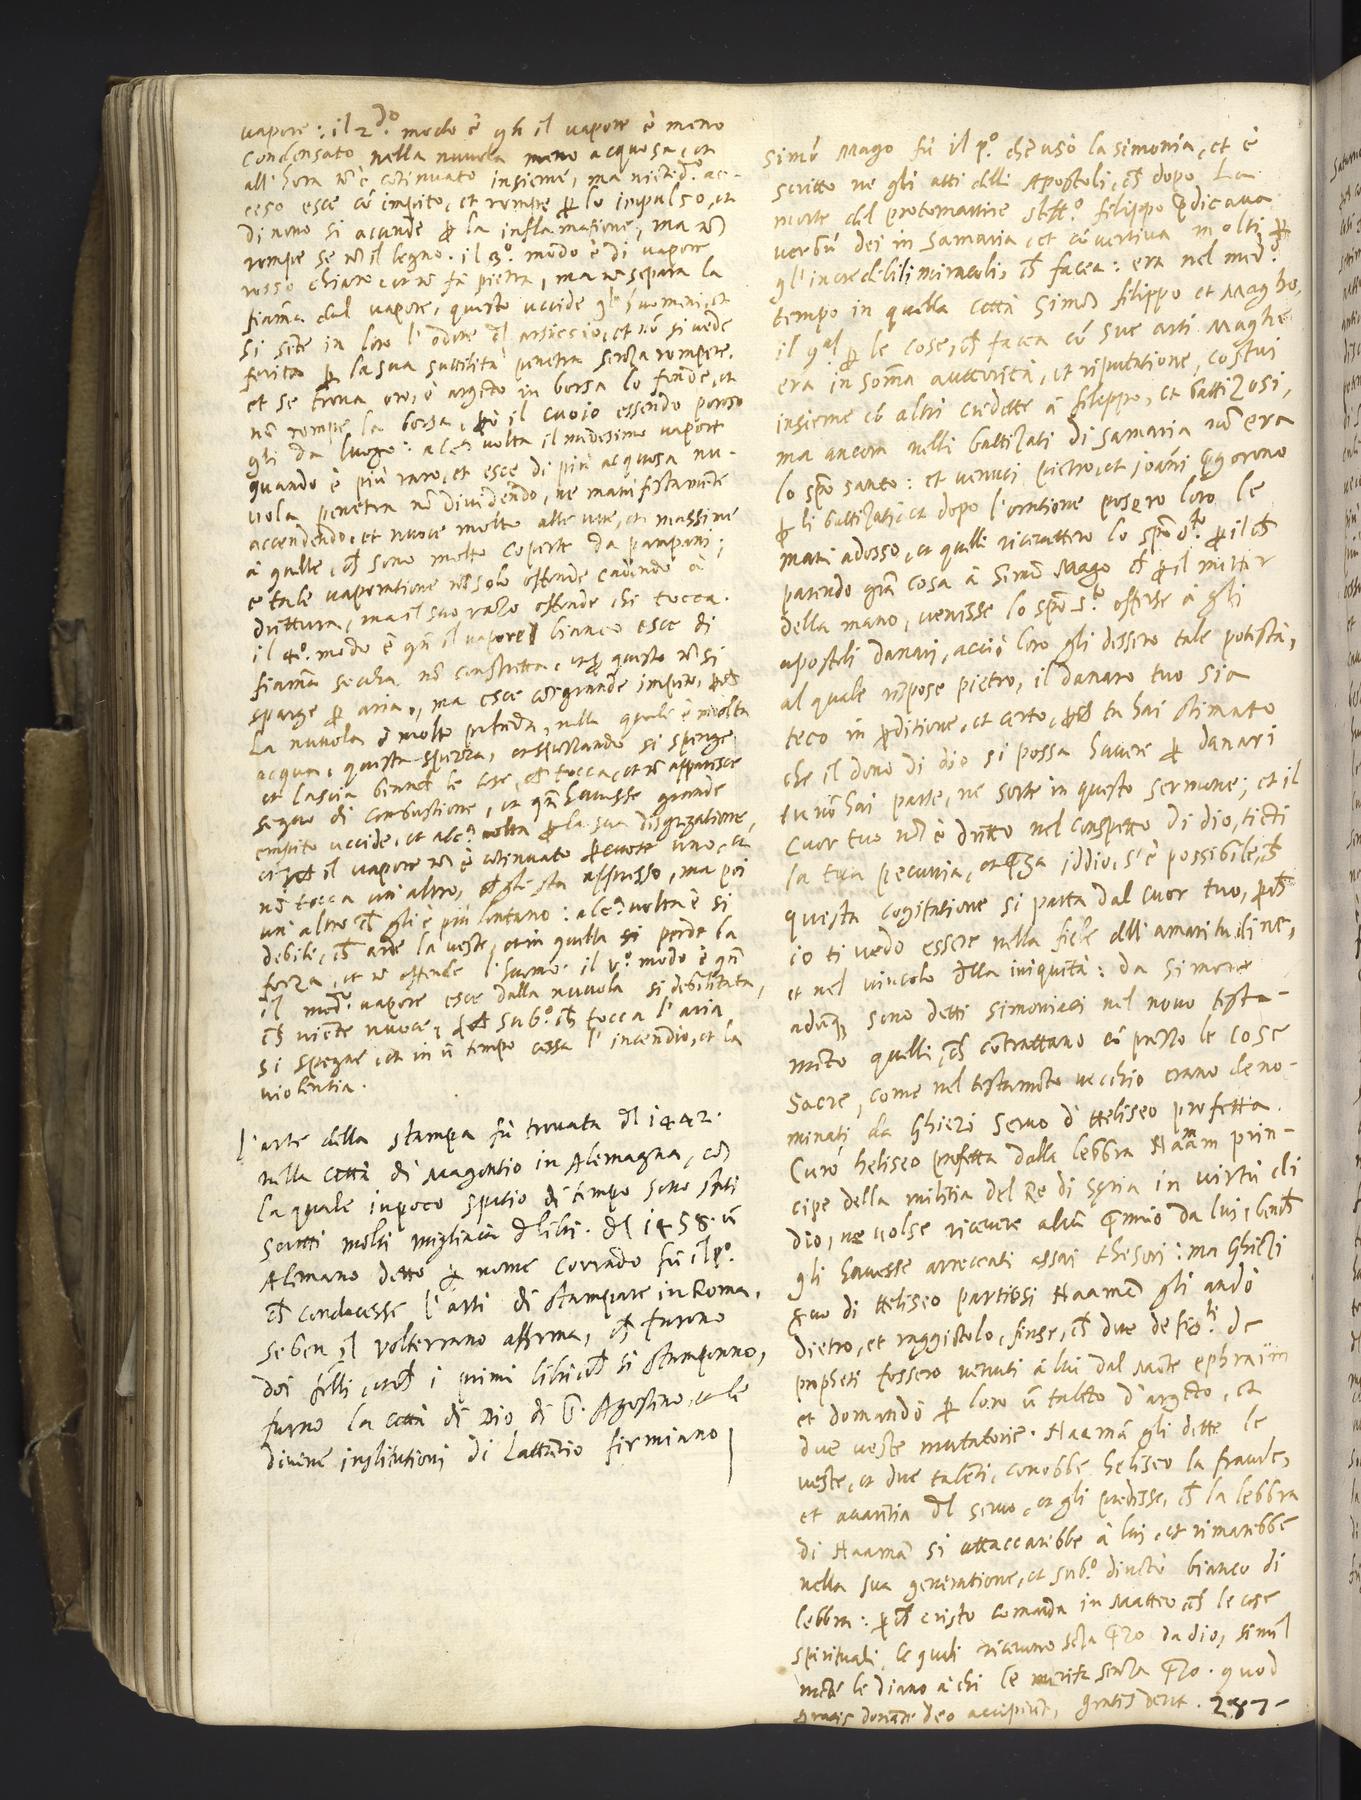 vapore: il 2do. modo è qñ il vapore è meno
condensato nella nuvola meno acquosa, et
all'hora nõ è cõtinuato insieme, ma
ceso esce cõ impito, et rompe ꝑ lo impulso, et
di novo si accende ꝑ la inflamatione, ma nõ
rompe se nõ il legno. il 3o. modo è di vapore
rosso chiaro, et nõ fà pietra, ma nõ separa la
fiam̃a dal vapore, questo uccide gl'huomini, et
si sẽte in loro l'odore arsiccio, et nõ si vede
ferita ꝑ la sua suttilità penetra senza rompere.
et se trova oro, ò argẽto in borsa lo fonde, et
nõ rompe la borsa, il cuoio essendo poroso
gli da luogo: alcã volta il medesimo vapore
quando è più raro, et esce di più acquosa nu-
vola penetra nõ dividendo, ne manifestamẽte
accendendo, et nuoce molto alle uve, et massime
à quelle, cħ sono molto coperte da pampani;
e tale vaporatione nõ solo offende cadendo à
drittura, ma il suo razo offende chi tocca.
il 4o. modo è qñ il vapore bianco esce di
fiam̃a secha nõ constretta, et ꝑ questo nõ si
sparge ꝑ aria, ma esce cõ grande impito,
La nuvola è molto profonda, nella quale è molta
acqua, questa spezza, et spezzando si spenge
et lascia bianche le cose, cħ tocca, et nõ apparisce
segno di combustione, et qñ havesse grande
empito uccide, et alcã volta ꝑ la sua disgregatione,
il vapore nõ è cõtinuato percuote uno, et
nõ tocca un'altro, cħ gli sta appresso, ma poi
un altro cħ gli è più lontano: alcã volta è si
debile, cħ arde la veste, et in quella si perde la
forza, et nõ offende l'huomo. il vo. modo è qñ
il medo. vapore esce dalla nuvola si debilitata,
cħ niente nuoce, subo. cħ tocca l'aria,
si spegne, et in ũ tempo cessa l'incendio, et la
violentia.
l'arte della stampa fù trovata dl 1442.
nella città di Magontio in Alemagna, cõ
la quale in poco spatio di tempo sono stati
scritti molti migliaia d libri. dl 1458. ũ
Alemano detto ꝑ nome Corrado fù il po.
cħ conducesse l'arti di stampare in Roma.
se ben il volterrano afferma, cħ furono
doi frlli, et cħ i primi libri, cħ si stamporno,
furno la città di Dio di S. Agostino, et le
divine institutioni di Lattantio firmiano
Simõ Mago fù il po. che usò la simonia, et è
scritto ne gli atti delli Apostoli, cħ dopo La
morte del protomartire steffo. filippo p̃dicava
verbũ dei in Samaria, et cõvertiva molti ꝑ
gl'incredibili miracoli, cħ facea: era nel medo.
tempo in quella città Simõ filippo et Magho,
il qual ꝑ le cose, cħ facea cõ sue arti Maghe
era in som̃a auttorità, et riputatione, costui
insieme cõ altri credette à filippo, et battizosi,
ma ancora nelli battizati di Samaria nõ era
lo sp̃o santo: et venuti pietro, et joãni p̃gorono
ꝑ li battizati, et dopo l'oratione posero loro le
mani adosso, et quelli ricevettero lo sp̃o sto. ꝑ il cħ
parendo grã cosa à Simõ Mago cħ ꝑ il metter
della mano, venisse lo sp̃o sto. offerse à gli
apostoli danari, acciò loro gli dessero tale potestà,
al quale rispose pietro, il danaro tuo sia
teco in ꝑditione, et certo, ꝑcħ tu hai stimato
che il dono di dio si possa havere ꝑ danari
tu nõ hai parte, ne sorte in questo sermone; et il
Cuor tuo nõ è dritto nel conspetto di dio, tieti
la tua pecunia, et p̃ga iddio, s'è possibile, cħ
questa cogitatione si parta dal cuor tuo, ꝑcħ
io ti vedo essere nella fiele dell'amaritudine,
et nel vincolo della iniquità: da Simone
adũq sono detti simoniaci nel novo testa-
mẽto quelli, cħ contrattano cõ prezzo le cose
Sacre, come nel testamẽto vecchio erano deno-
minati da Ghiezi servo d'Heliseo profetta.
Curò heliseo profetta dalla lebbra Naamam prin-
cipe della militia del Re di Syria in virtù di
dio, ne volse ricevere alcũ p̃mio da lui, bencħ
gli havesse arreccati assai thesori: ma Ghiezi
servo di Heliseo partitosi Naamã gli andò
dietro, et raggiũtolo, finse, cħ due de figli de
propheti fossero venuti à lui dal Mõte ephraim
et domandò ꝑ loro ũ talẽto d'argẽto, et
due veste mutatorie. Naamã gli dette le
veste, et due talenti, conobbe heliseo la fraude,
et avaritia dl servo, et gli predisse, cħ la lebbra
di Naamã si attaccarebbe à lui, et rimarebbe
nella sua generatione, et subo. divẽtò bianco di
lebbra: ꝑ cħ cristo comanda in Matteo cħ le cose
spirituali, le quali ricevono sẽza p̃zo da dio, simil
mẽte le diano à chi le merita senza p̃zo. quod
gratis donãte deo accipiunt, gratis dent. 287-